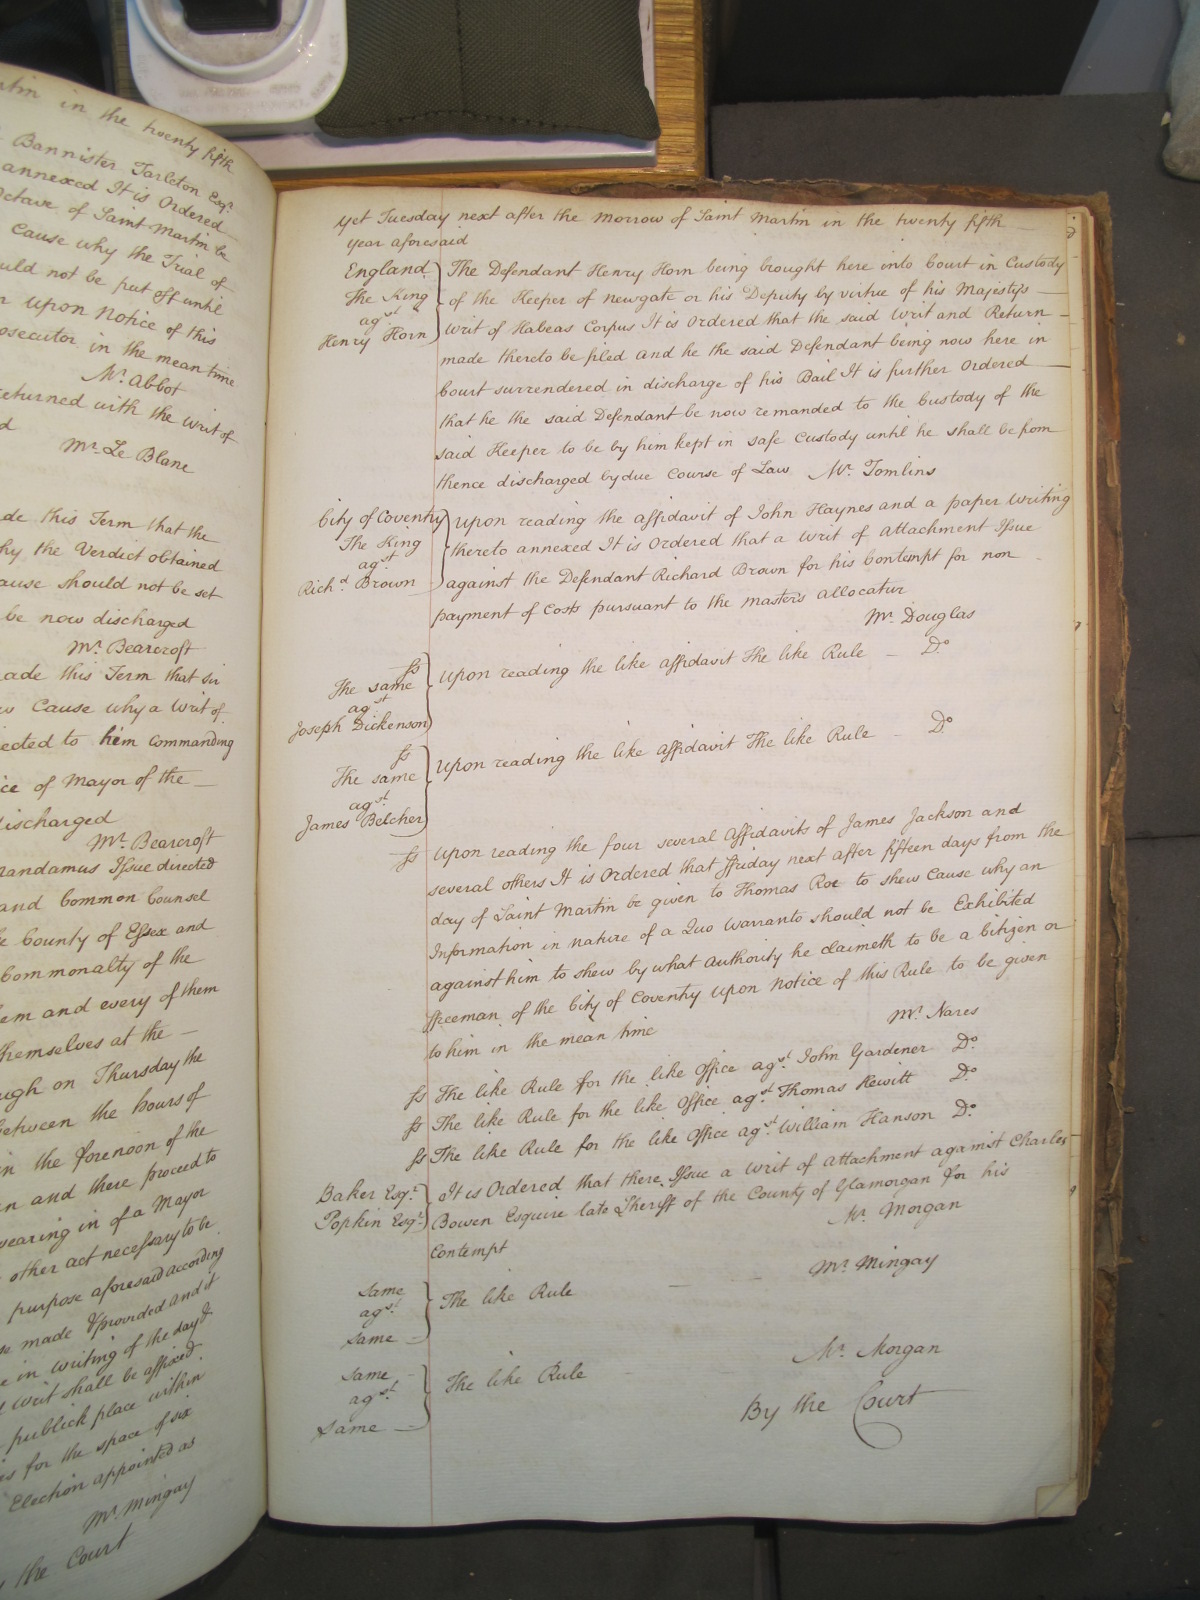 rtin in the twenty fifth
Bannister Tarleton Esqr.
annexed It is Ordered
Octave of Saint Martin be
Cause why the Trial of
uld not be put off until
n upon Notice of this
osecutor in the mean time
Mr. Abbot
returned with the Writ of
d
Mr. Le Blanc
ade this Term that the
hy the Verdict obtained
ause should not be set
be now discharged
Mr. Bearcroft
ade this Term that sir
w Cause why a Writ of
ected to him commanding
ice of Mayor of the
discharged
Mr. Bearcroft
mandamus Issue directed
and Common Counsel
e County of Essex and
Commonalty of the
em and every of them
themselves at the
ough on Thursday the
between the hours of
in the forenoon of the
n and there proceed to
wearing in of a Mayor
other act necessary to be
purpose aforesaid according
se made & provided and it
e in writing of the day &
writ shall be affixed
publick place within
is for the space of six
Election appointed as
Mr. Mingay
the Court
Yet Tuesday next after the Morrow of Saint Martin in the twenty fifth
year aforesaid
England The Defendant Henry Horn being brought here into Court in Custody
The King of the Keeper of Newgate or his Deputy by virtue of his Majestys
agst. Writ of Habeas Corpus It is Ordered that the said Writ and Return
Henry Horn made thereto be filed and he the said Defendant being now here in
Court surrendered in discharge of his Bail It is further Ordered
that he the said Defendant be now remanded to the Custody of the
said Keeper to be by him kept in safe Custody until he shall be from
thence discharged by due Course of Law Mr. Tomlins
City of Coventry Upon reading the affidavit of John Haynes and a paper Writing
The King thereto annexed It is Ordered that a Writ of Attachment Issue
agst. against the Defendant Richard Brown for his Contempt for non
Richd. Brown payment of Costs pursuant to the Masters allocatur
Mr. Douglas
ss Upon reading the like Affidavit The like Rule Do
The same
agst.
Joseph Dickenson
ss Upon reading the like Affidavit The like Rule Do
The same
agst.
James Belcher
ss Upon reading the four several Affidavits of James Jackson and
several others It is Ordered that ffriday next after fifteen days from the
day of Saint Martin be given to Thomas Roe to shew Cause why an
Information in nature of a Quo Warranto should not be Exhibited
against him to shew by what Authority he claimeth to be a Citizen or
ffreeman of the City of Coventry Upon Notice of this Rule to be given
to him in the mean time Mr. Nares
ss The like Rule for the like Office agst. John Gardener Do.
ss The like Rule for the like Office agst. Thomas Hewitt Do.
ss The like Rule for the like Office agst. William Hanson Do.
Baker Esqr. It is Ordered that there Issue a Writ of Attachment against Charles
Popkin Esqr. Bowen Esquire late Sheriff of the County of Glamorgan for his
Contempt Mr. Morgan
Mr. Mingay
Same
agst. The like Rule
Same
Mr. Morgan
Same
agst. The like Rule
Same
By the Court